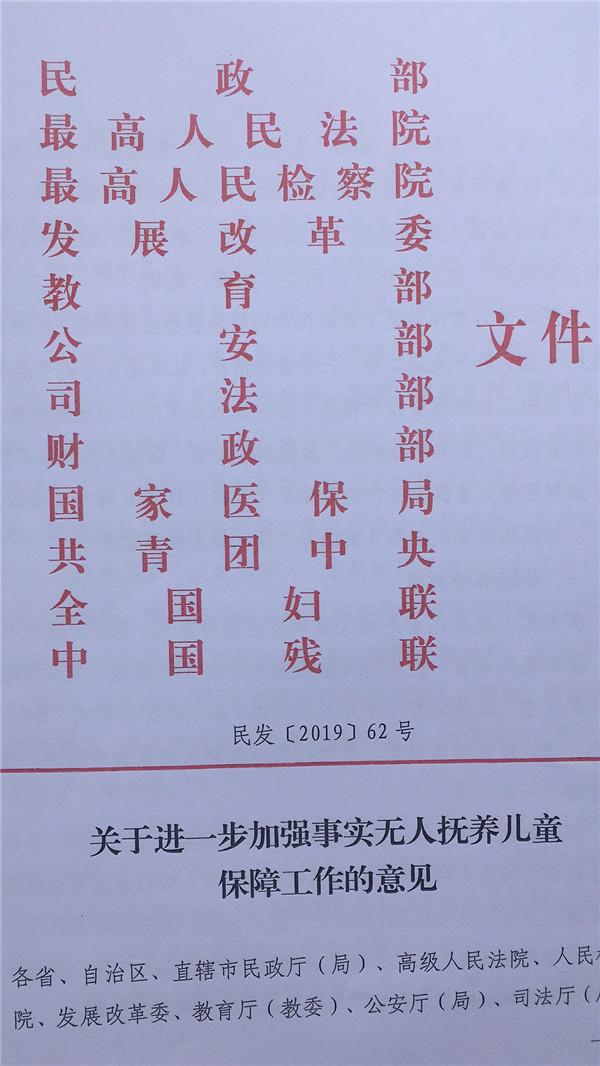 民政部
最高人民法院
最高人民检察院
发展改革委
教育部
公安部
司法部
财政部
国家医保局
共青团中央
全国妇联
中国残联
文件
民发〔2019〕62号
关于进一步加强事实无人抚养儿童
保障工作的意见
各省、自治区、直辖市民政厅（局）、高级人民法院、人民
院、发展改革委、教育厅（教委）、公安厅（局）、司法厅（